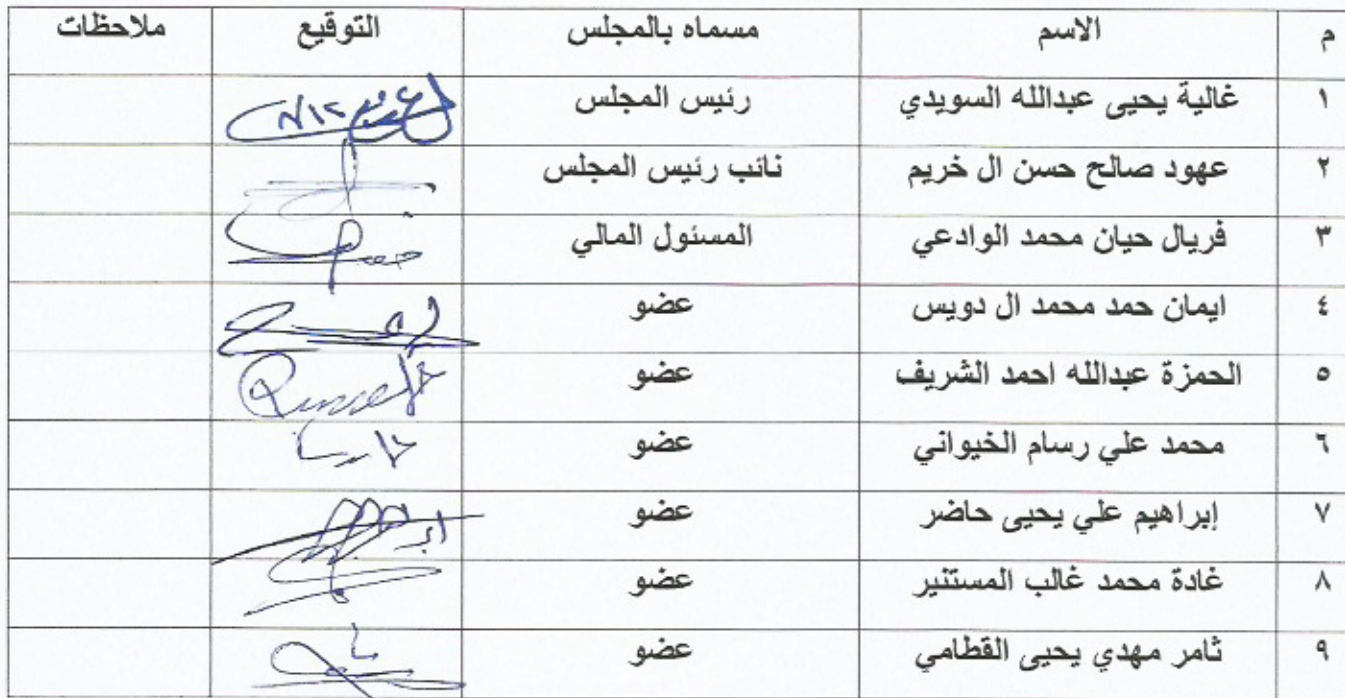 م الاسم مسماه بالمجلس التوقيع ملاحظات
١ غالية يحيى عبدالله السويدي رئيس المجلس
٢ عهود صالح حسن ال خريم نائب رئيس المجلس
٣ فريال حيان محمد الوادعي المسئول المالي
٤ ايمان حمد محمد ال دويس عضو
٥ الحمزة عبدالله احمد الشريف عضو
٦ محمد علي رسام الخيواني عضو
٧ إبراهيم علي يحيى حاضر عضو
٨ غادة محمد غالب المستنير عضو
٩ ثامر مهدي يحيى القطامي عضو